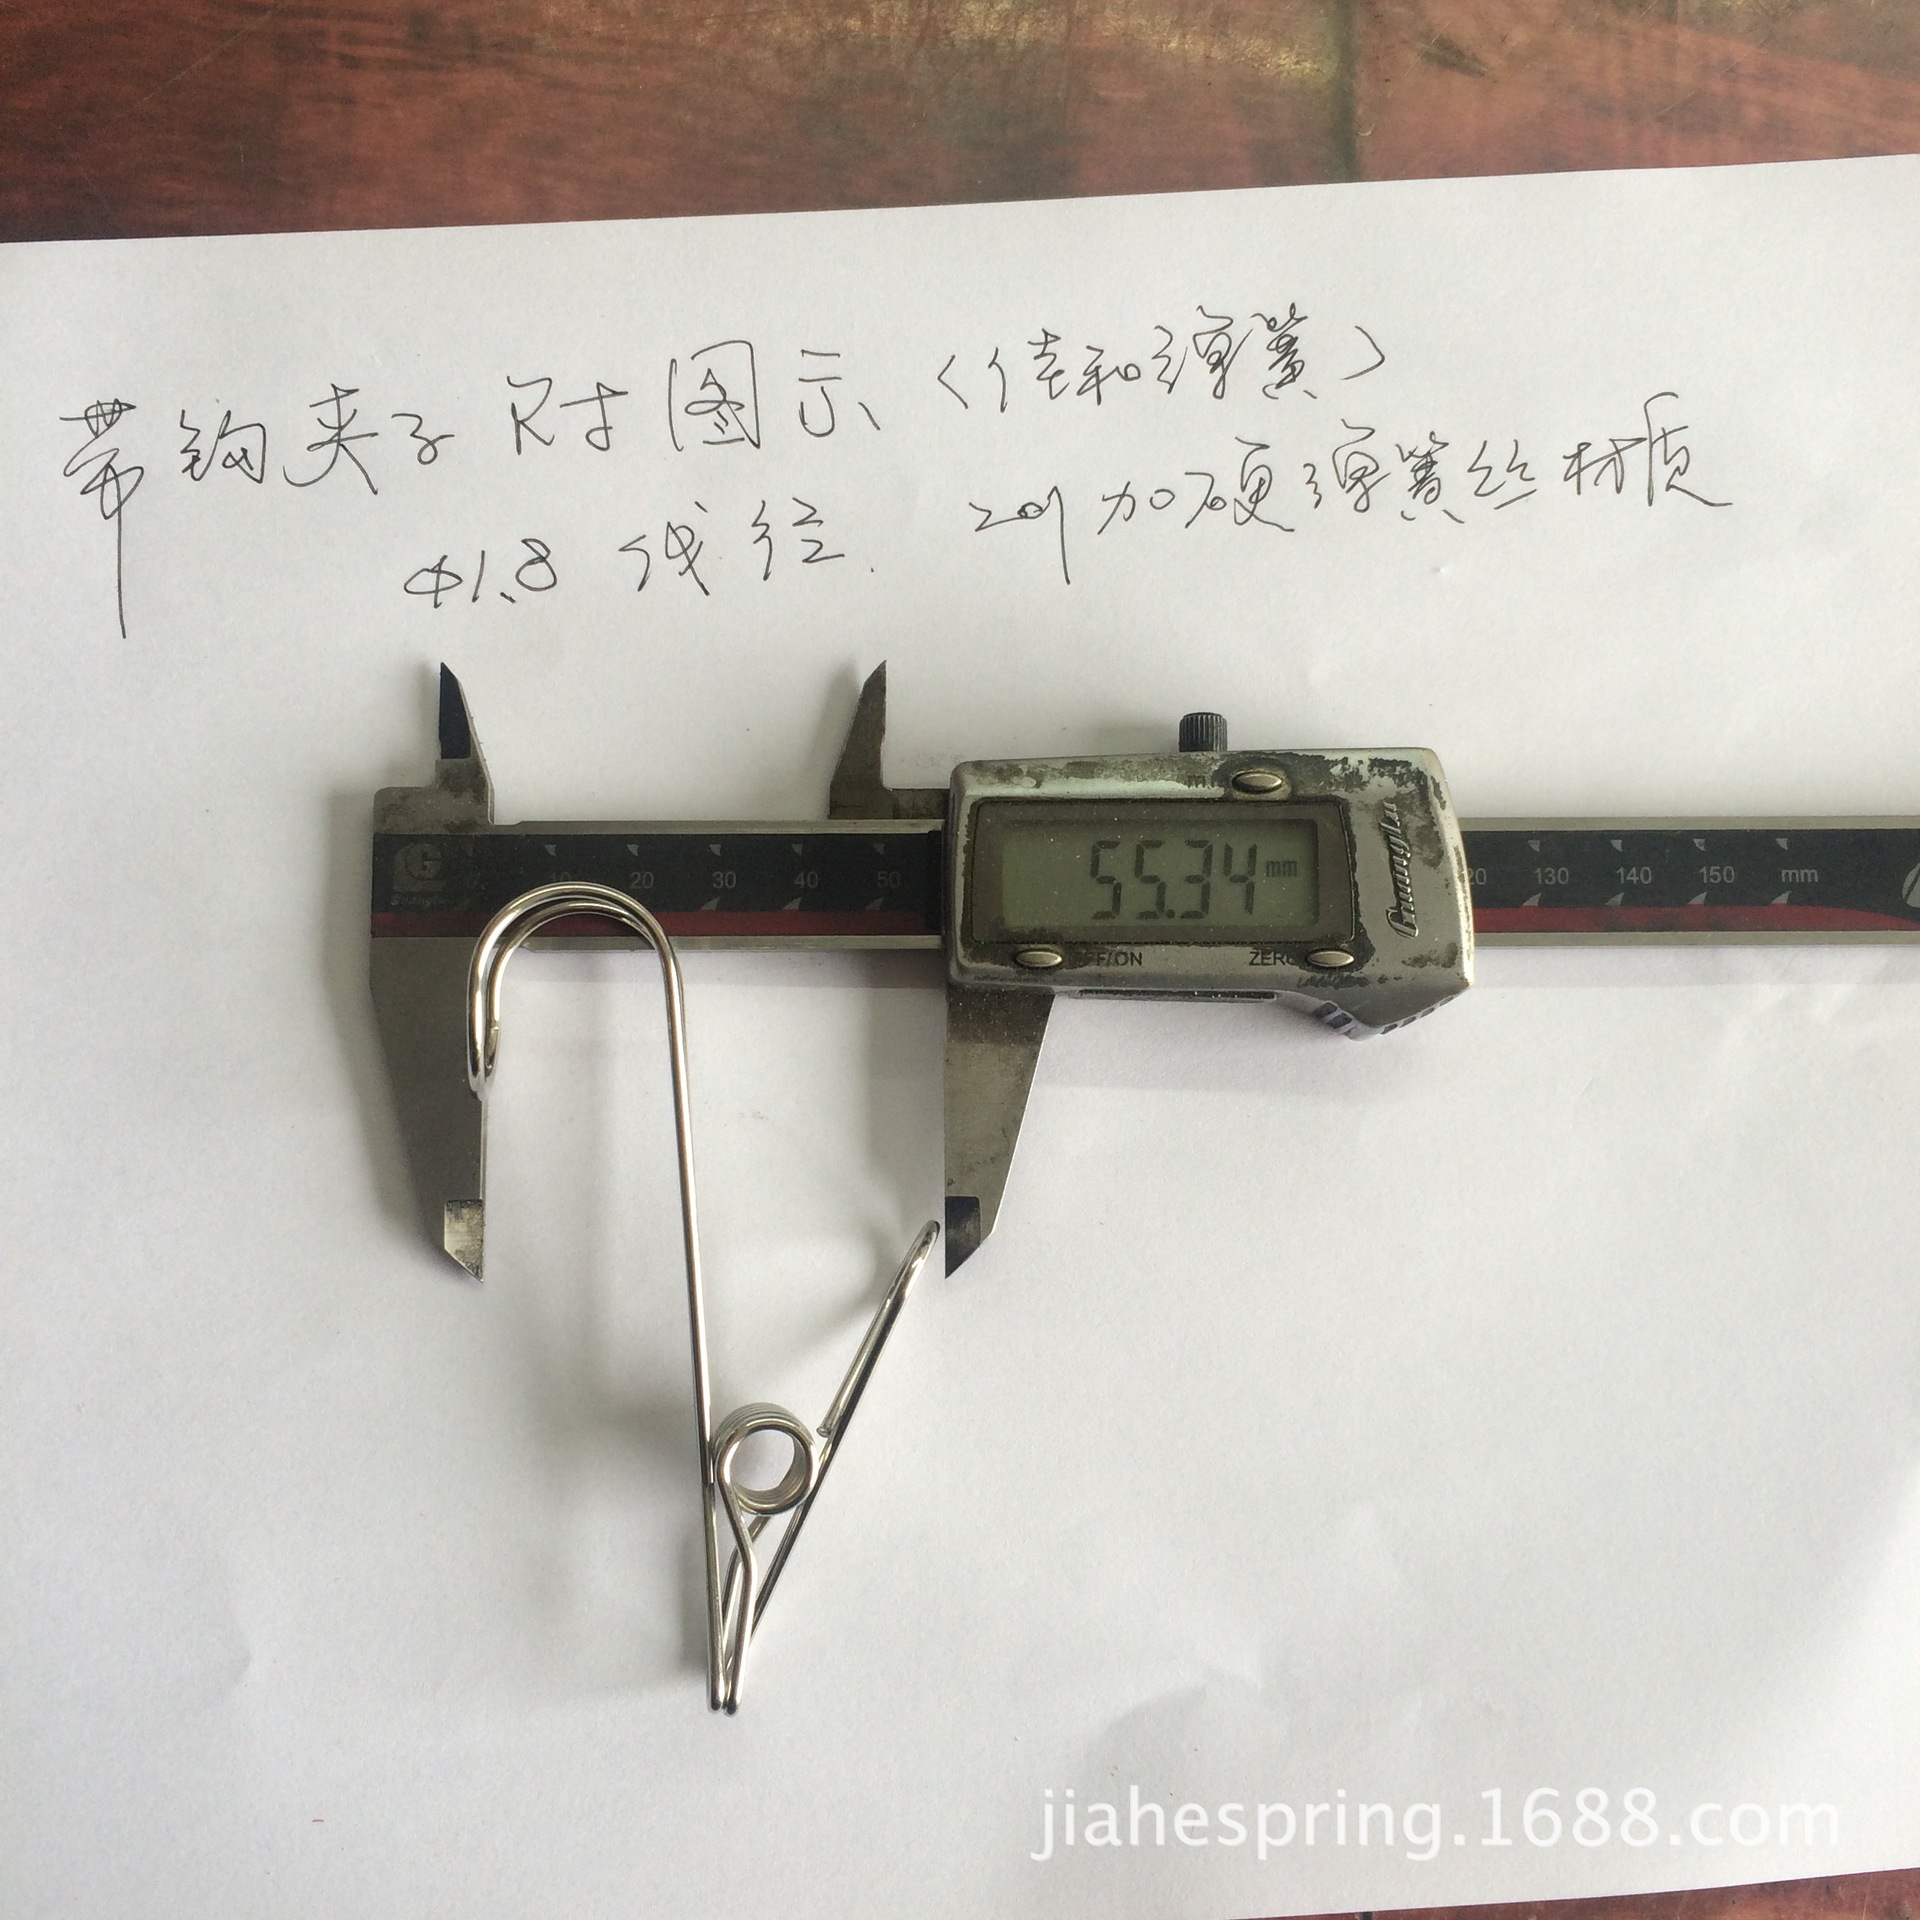 带钩夹子尺寸图示(佳和弹簧)
Φ1.8 线径. 201加硬弹簧丝材质
55.34 mm
Guanglu
10 20 30 40 50
130 140 150 mm
ZERO
jiahespring.1688.com